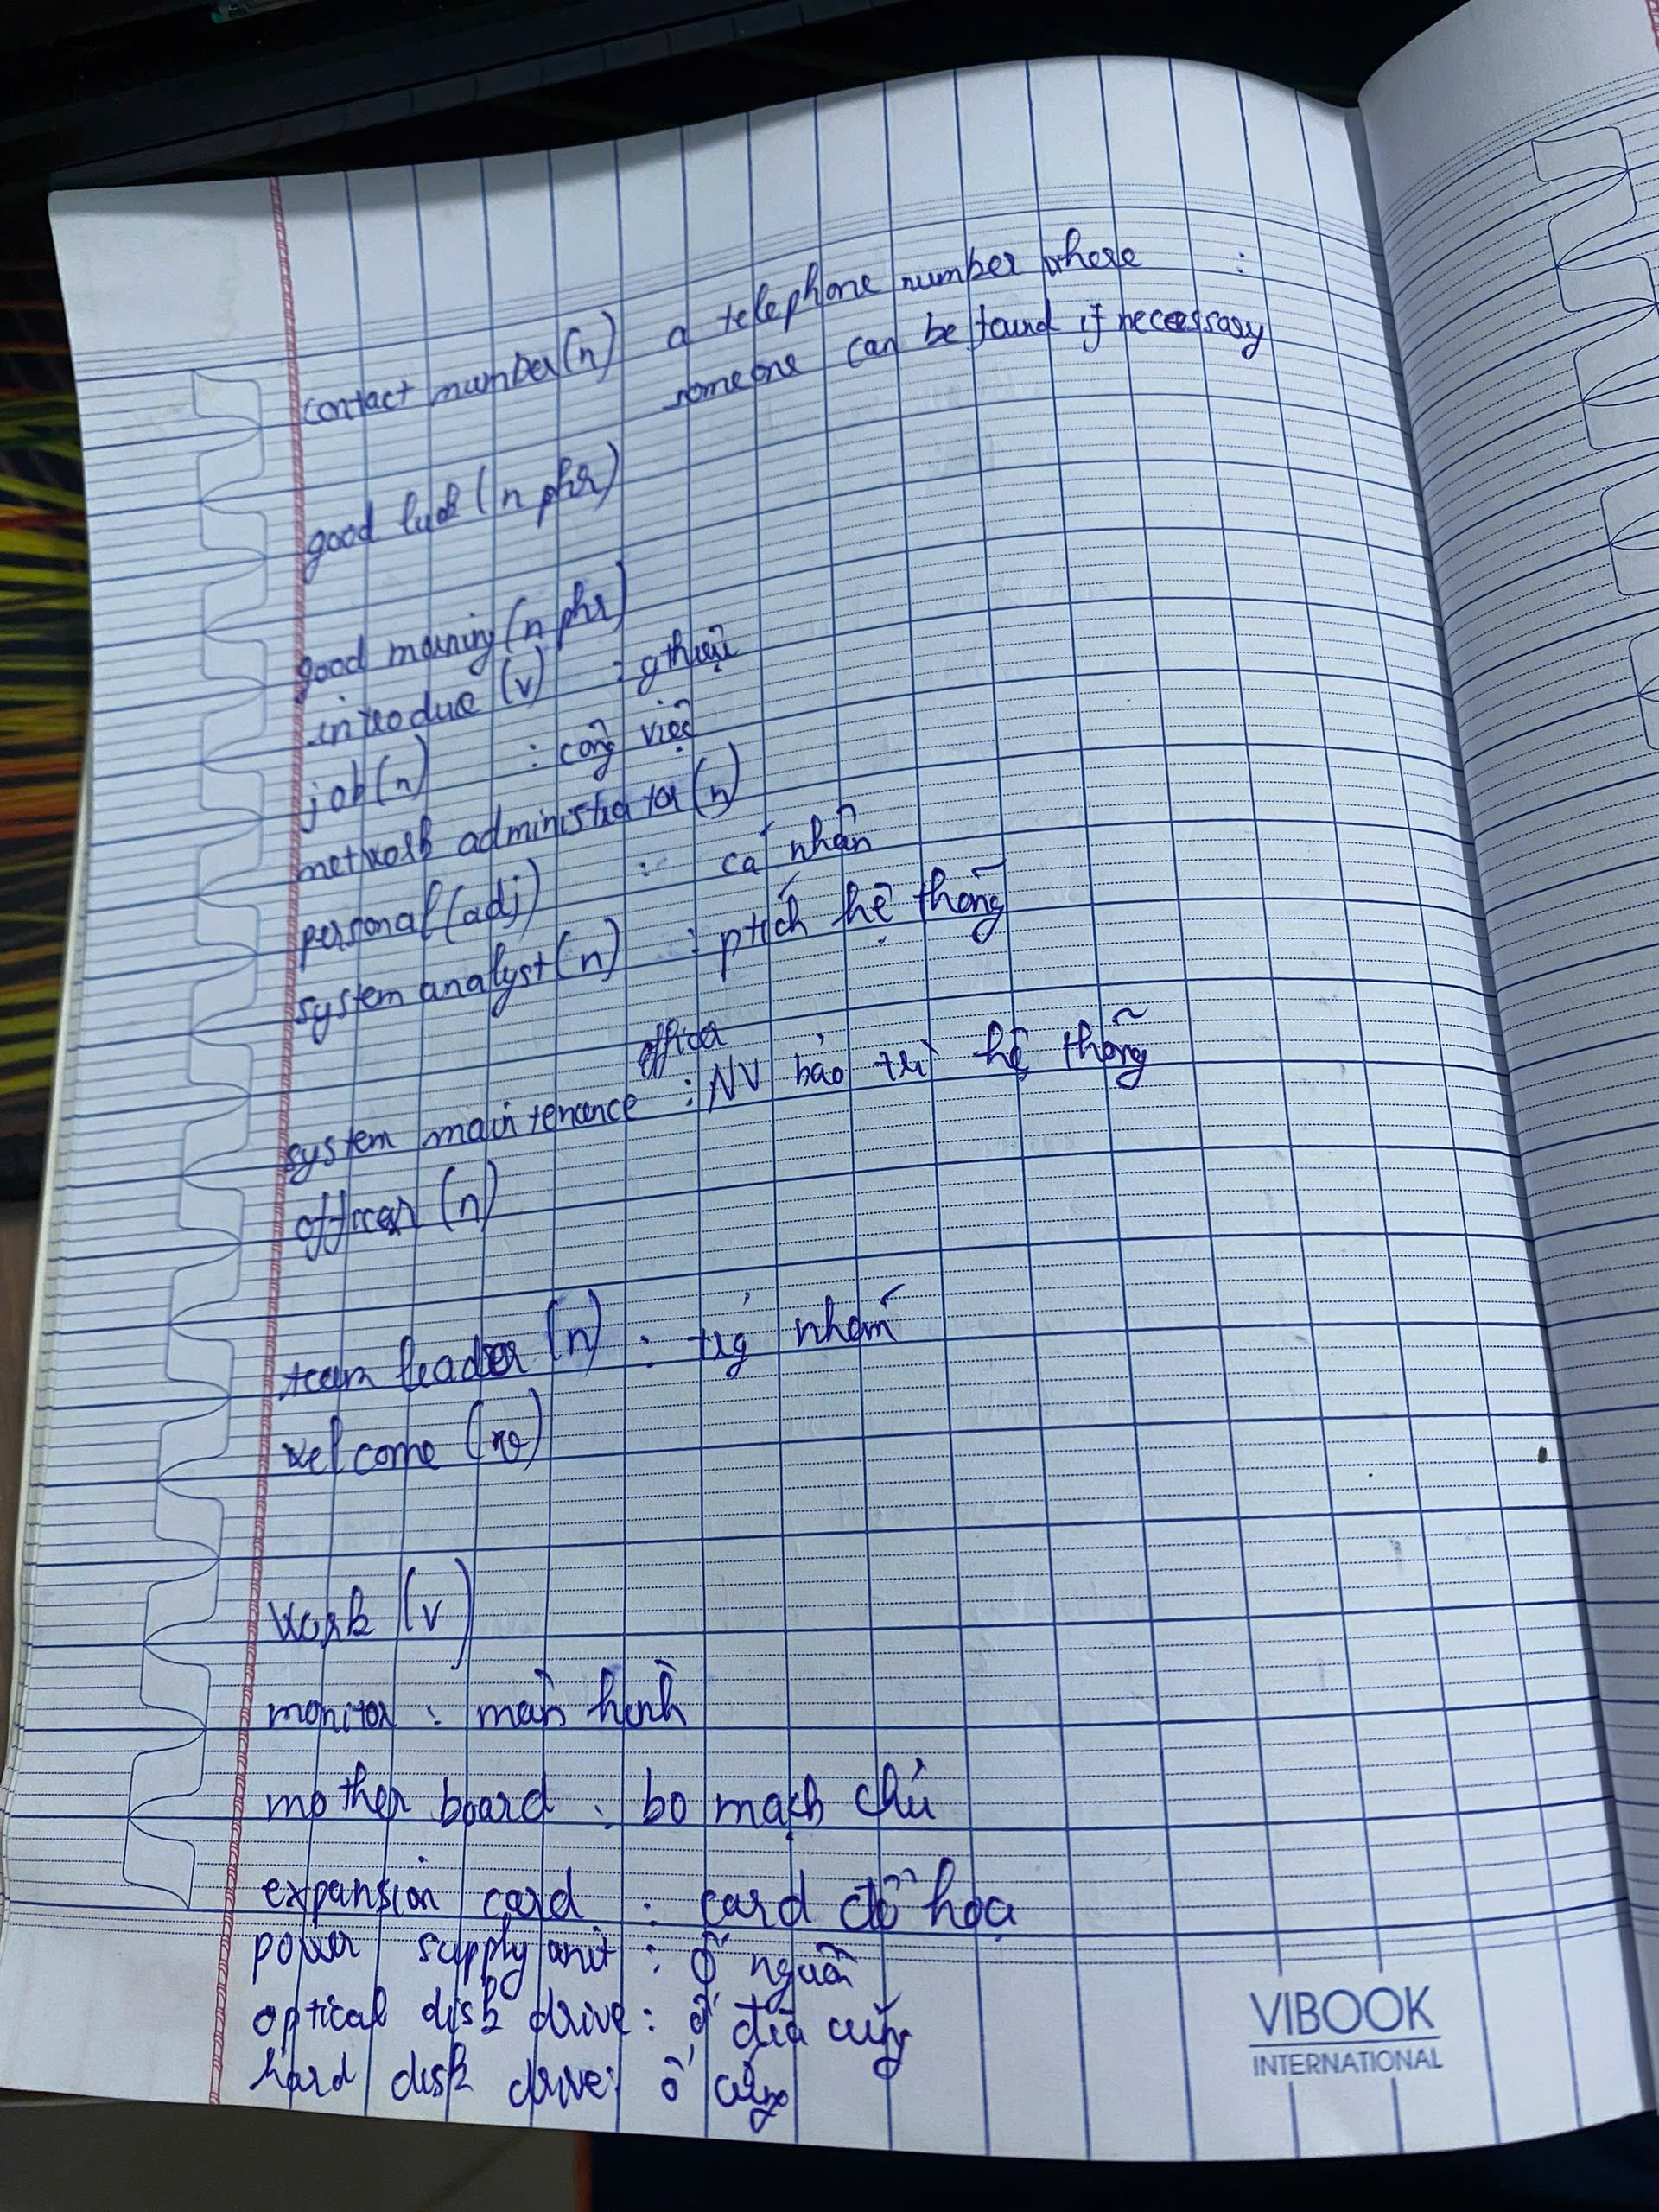 contact number (n) a telephone number where :
someone can be found if necessary
good luck (n phr)
good morning (n phr)
introduce (v) : gthiệu
job (n) : công việc
network administrator (n)
personal (adj) : cá nhân
system analyst (n) : ptích hệ thống
system maintenance : NV bảo trì hệ thống
officer (n)
team leader (n) : trg nhóm
welcome
work (v)
monitor : màn hình
mother board : bo mạch chủ
expansion card : card đồ họa
power supply unit : ổ nguồn
optical disk drive : ổ đĩa cứng
hard disk drive : ổ cứng
VIBOOK
INTERNATIONAL